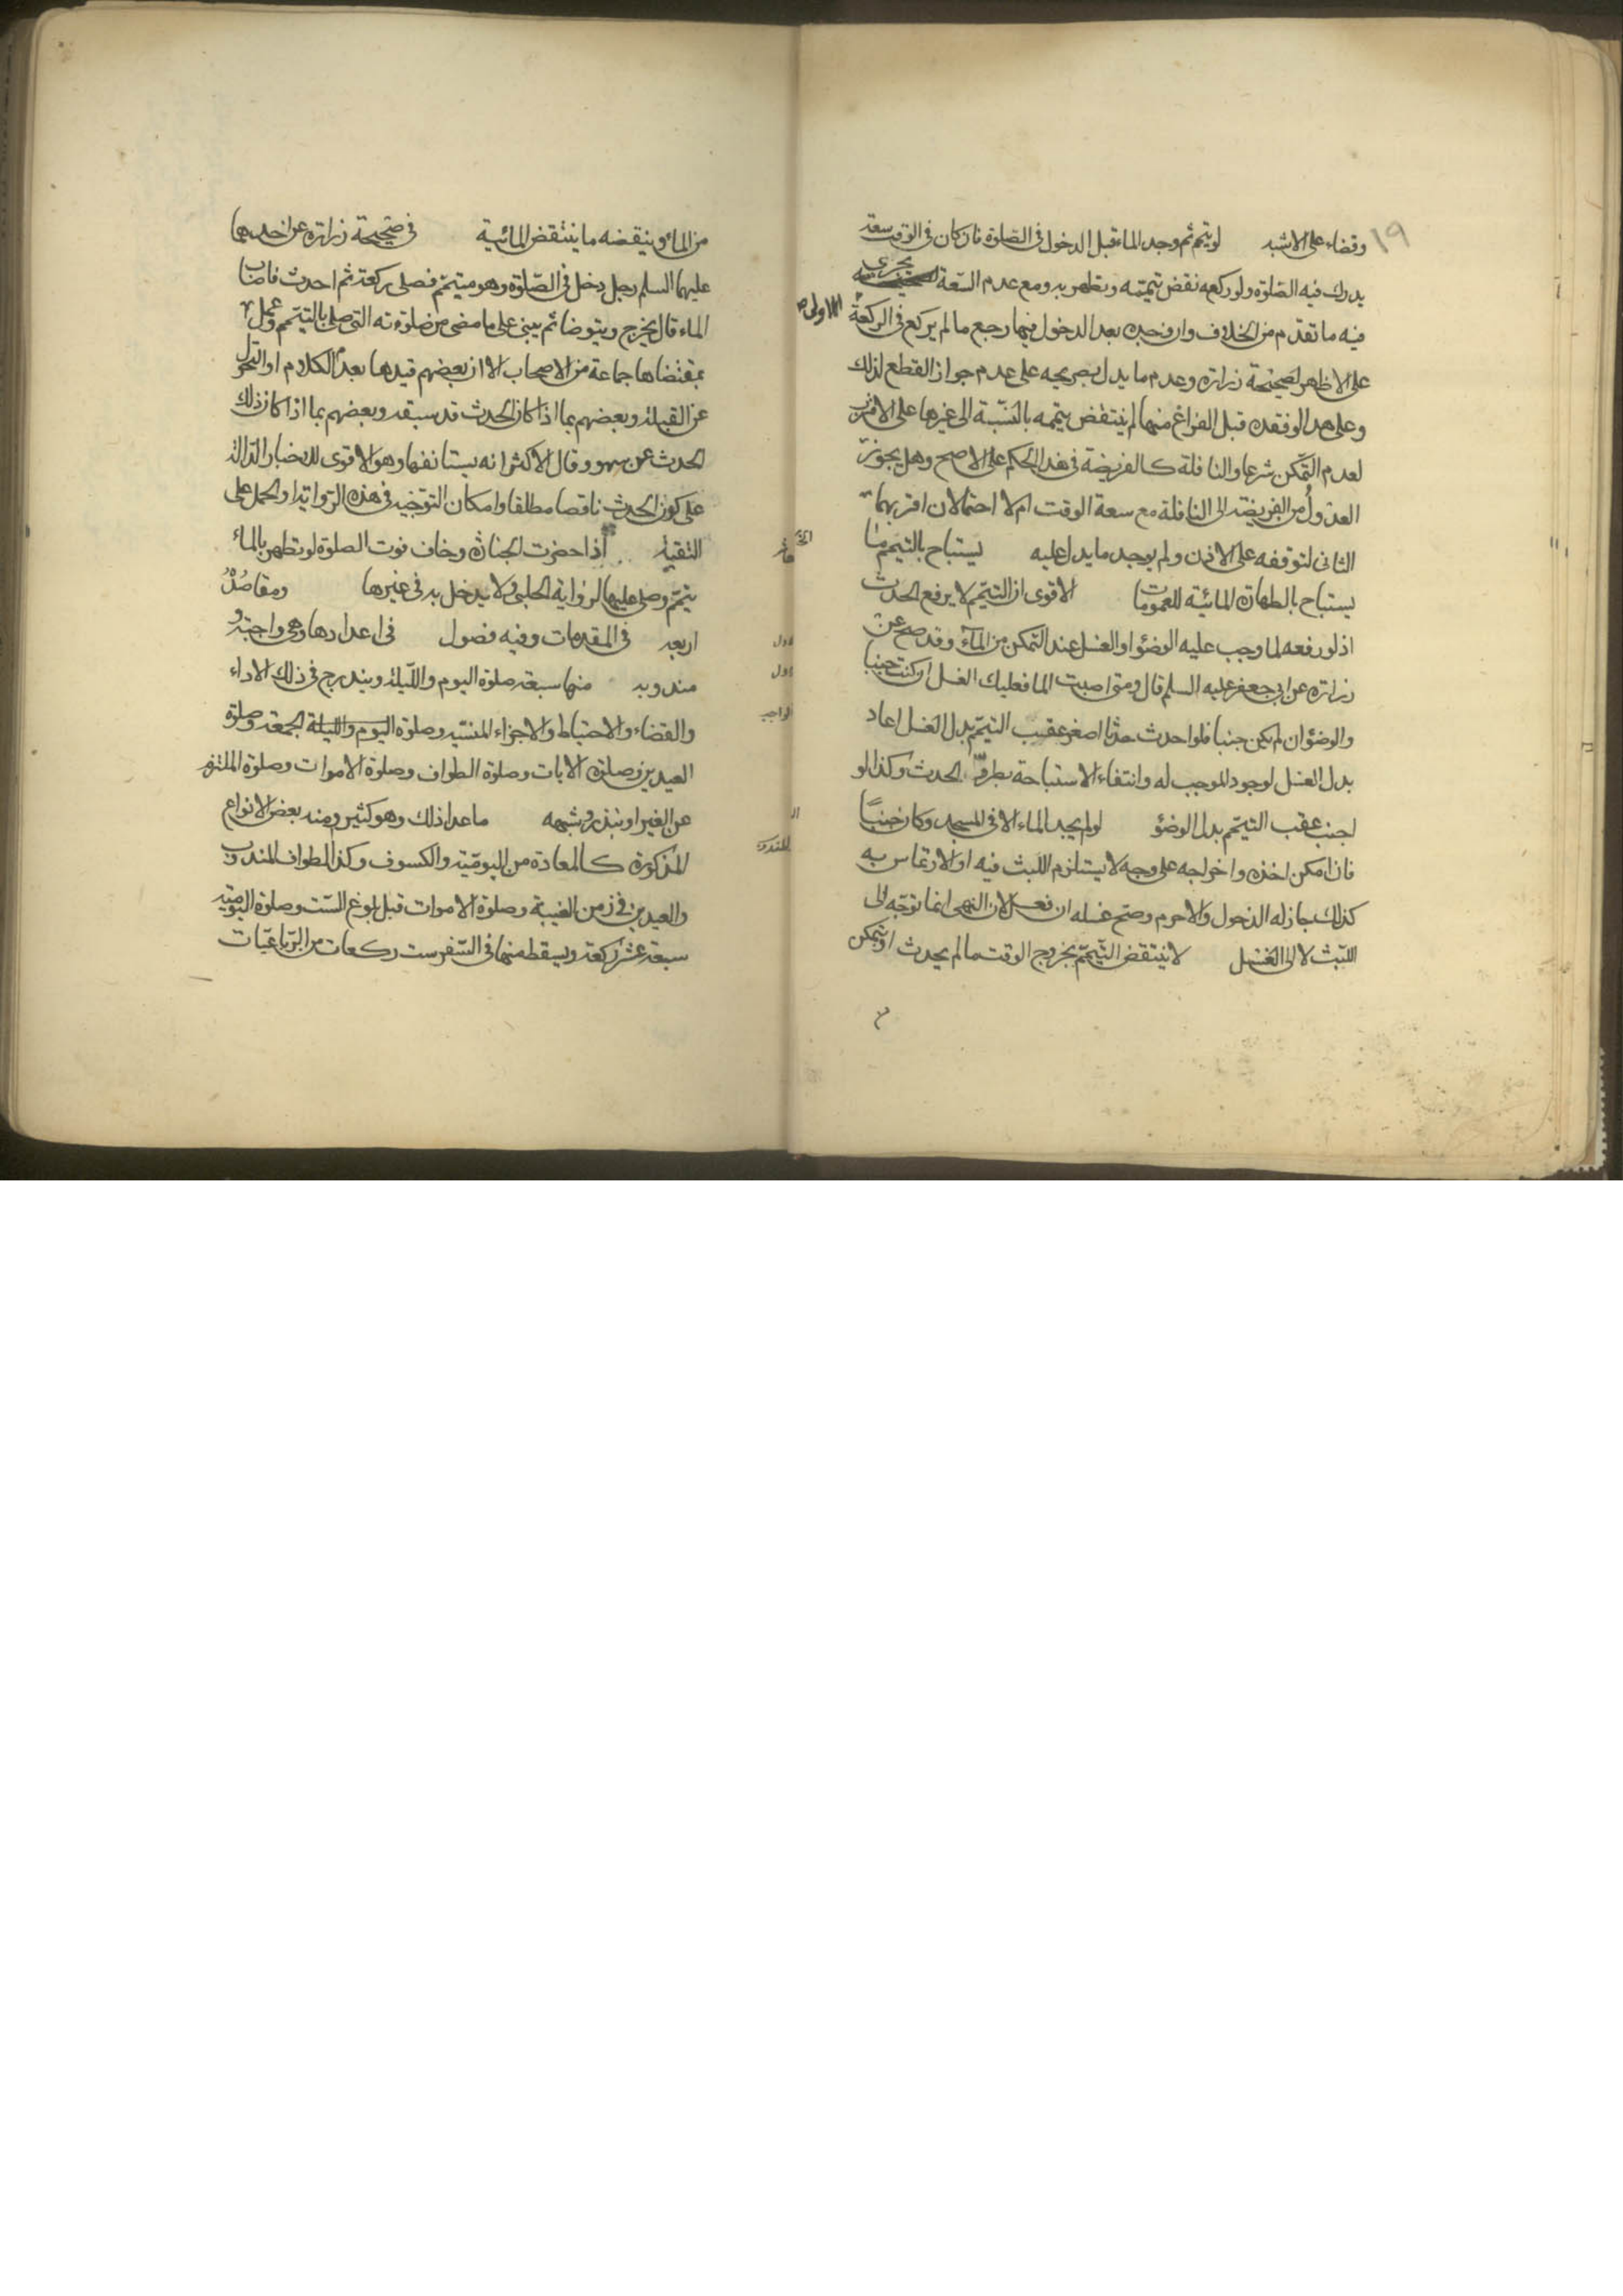 ١٩
وقضاء على الاشبه لو تيمم ثم وجد الماء قبل الدخول في الصلوة فان كان في الوقت سعة
يدرك فيه الصلوة ولو ركعة نقض تيممه وتطهر به ومع عدم السعة يجري
فيه ما تقدم من الخلاف وان وجده بعد الدخول فيها رجع ما لم يركع في الركعة الاولى
على الاظهر لصحيحة زرارة وعدم ما يدل بصريحه على عدم جواز القطع لذلك
وعلى هذا لو فقده قبل الفراغ منها لم ينتقض تيممه بالنسبة الى غيرها على الاقرب
لعدم التمكن شرعا والنافلة كالفريضة في هذا الحكم على الاصح وهل يجوز
العدول من الفريضة الى النافلة مع سعة الوقت ام لا احتمالان اقربهما
الثاني لتوقفه على الاذن ولم يوجد ما يدل عليه يستباح بالتيمم ما
يستباح بالطهارة المائية للعمومات الاقوى ان التيمم لا يرفع الحدث
اذ لو رفعه لما وجب عليه الوضوء او الغسل عند التمكن من الماء وقد صح عن
زرارة عن ابي جعفر عليه السلم قال ومتى اصبت الما فعليك الغسل ان كنت جنبا
والوضوء ان لم يكن جنبا فلو احدث حدثا اصغر عقيب التيمم بدل الغسل اعاد
بدل الغسل لوجود الموجب له وانتفاء الاستباحة بطروّ الحدث وكذا لو
اجنب عقب التيمم بدل الوضؤ لو لم يجد الماء الا في المسجد وكان جنبًا
فان امكن اخذه واخراجه على وجه لا يستلزم اللبث فيه او الارتماس به
كذلك جاز له الدخول والا حرم وصح غسله ان فعل لان النهي انما توجه الى
اللبث لا الى الغسل لا ينتقض التيمم بخروج الوقت ما لم يحدث او يتمكن
من الماء وينقضه ما ينتقض المائية في صحيحة زرارة عن احدهما
عليهما السلم رجل دخل في الصلوة وهو متيمم فصلى ركعة ثم احدث فاصاب
الماء قال يخرج ويتوضا ثم يبني على ما مضى من صلوته التي صلى بالتيمم وعمل
بمقتضاها جماعة من الاصحاب الا ان بعضهم قيدها بعدم الكلام او التحول
عن القبلة وبعضهم بما اذا كان الحدث قد سبقه وبعضهم بما اذا كان ذلك
الحدث عن سهو وقال الاكثر انه يستانفها وهو الاقوى للاخبار الدالة
على كون الحدث ناقضا مطلقا وامكان التوجيه في هذه الرواية او الحمل على
التقية اذا حضرت الجنازة وخاف فوت الصلوة لو تطهر بالماء
تيمم وصلى عليها لرواية الحلبي ولا يدخل به في غيرها ومقاصده
اربعة في المقدمات وفيه فصول في اعدادها وهي واجبة و
مندوبة منها سبعة صلوة اليوم والليلة ويندرج في ذلك الاداء
والقضاء والاحتياط والاجزاء المنسية وصلوة اليوم والليلة الجمعة وصلوة
العيدين وصلوة الايات وصلوة الطواف وصلوة الاموات وصلوة الملتزم
عن الغير او بنذر وشبهه ما عدا ذلك وهو كثير ومنه بعض الانواع
المذكورة كالمعادة من اليومية والكسوف وكذا الطواف المندوب
والعيدين في زمن الغيبة وصلوة الاموات قبل بلوغ الست وصلوة اليومية
سبعة عشر ركعة ويسقط منها في السفر ست ركعات من الرباعيات